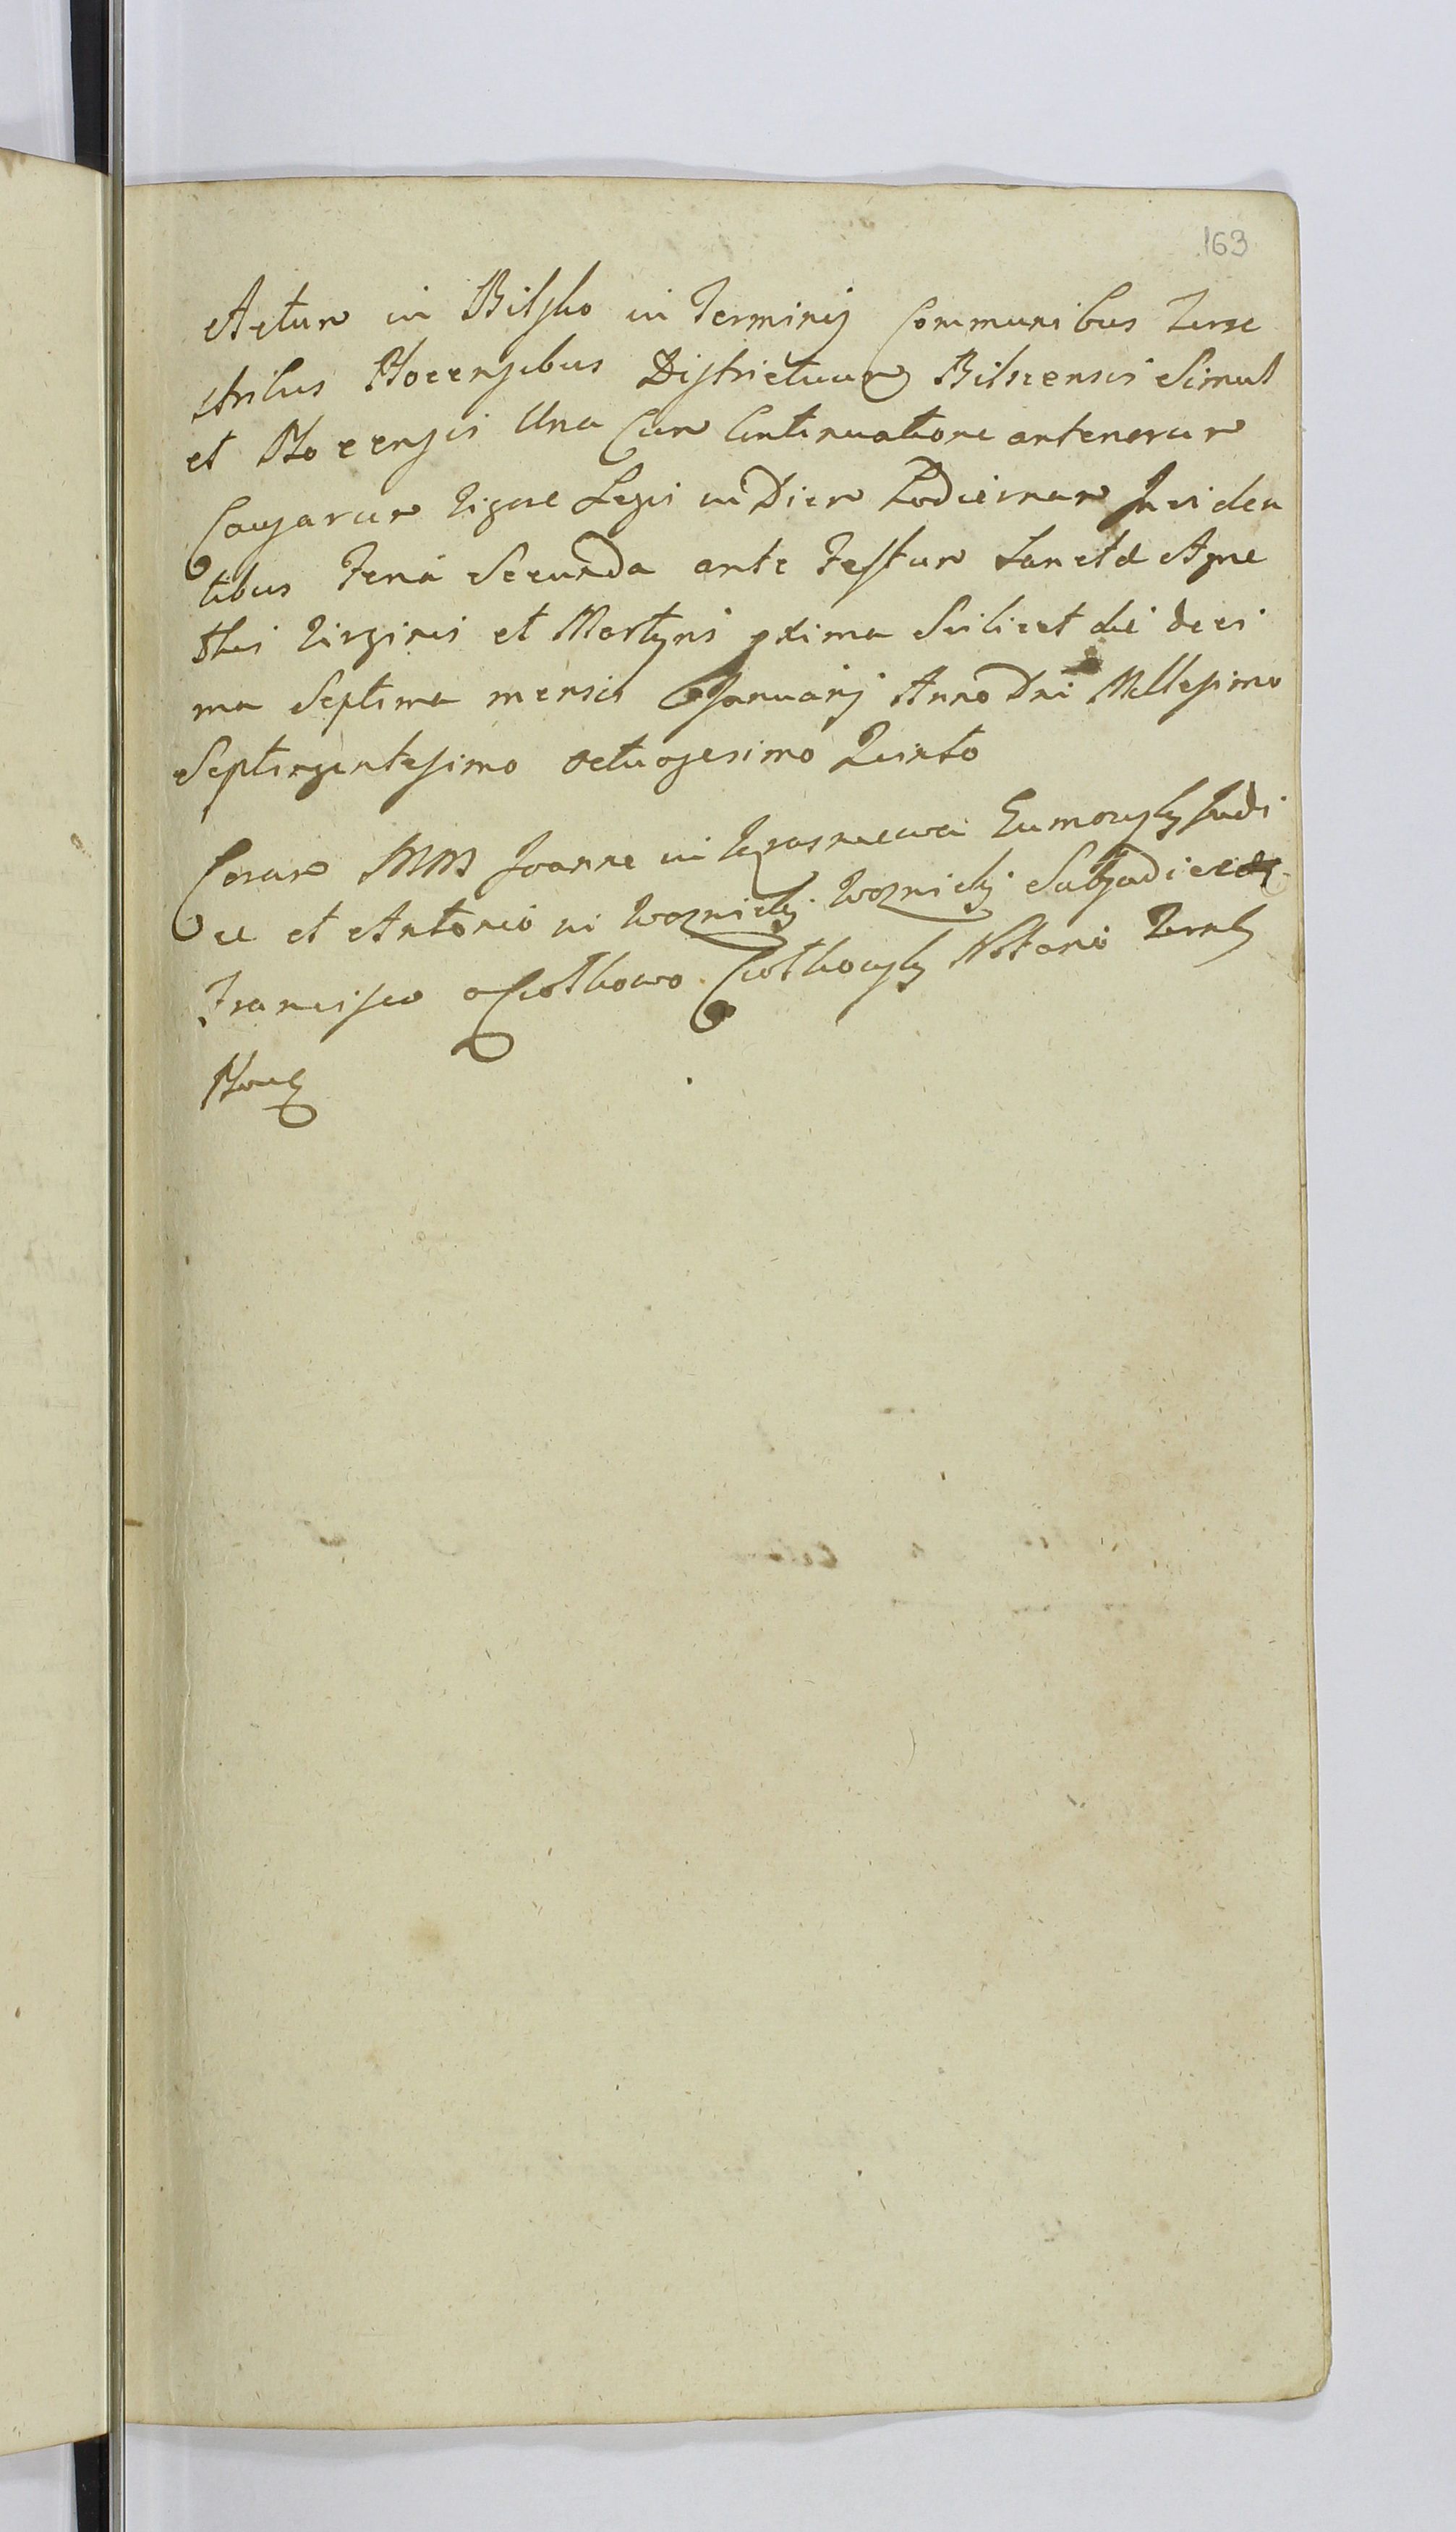 163
Actum in Bilsko in Terminis Communibus Terre
stribus Plocensibus Districtuum Bilscensis Simul
et Plocensis Una Cum Continuatione anteriorum
Causarum Vigore Legis in Diem Hodiernam Inciden
tibus Feria Secunda ante Festum Sanctæ Agne
this Virginis et Martyris pxima Scilicet die deci
ma Septima mensis Januarij Anno Dni Millesimo
Septingentesimo octuagesimo Quinto
Coram MM Joanne in Krasniewa Zumowsky Judi
ce et Antonio in Woznicky Woznicky Subjudice
Francisco a Ciotkowo Ciotkowsky Notario Terrl
Ploc